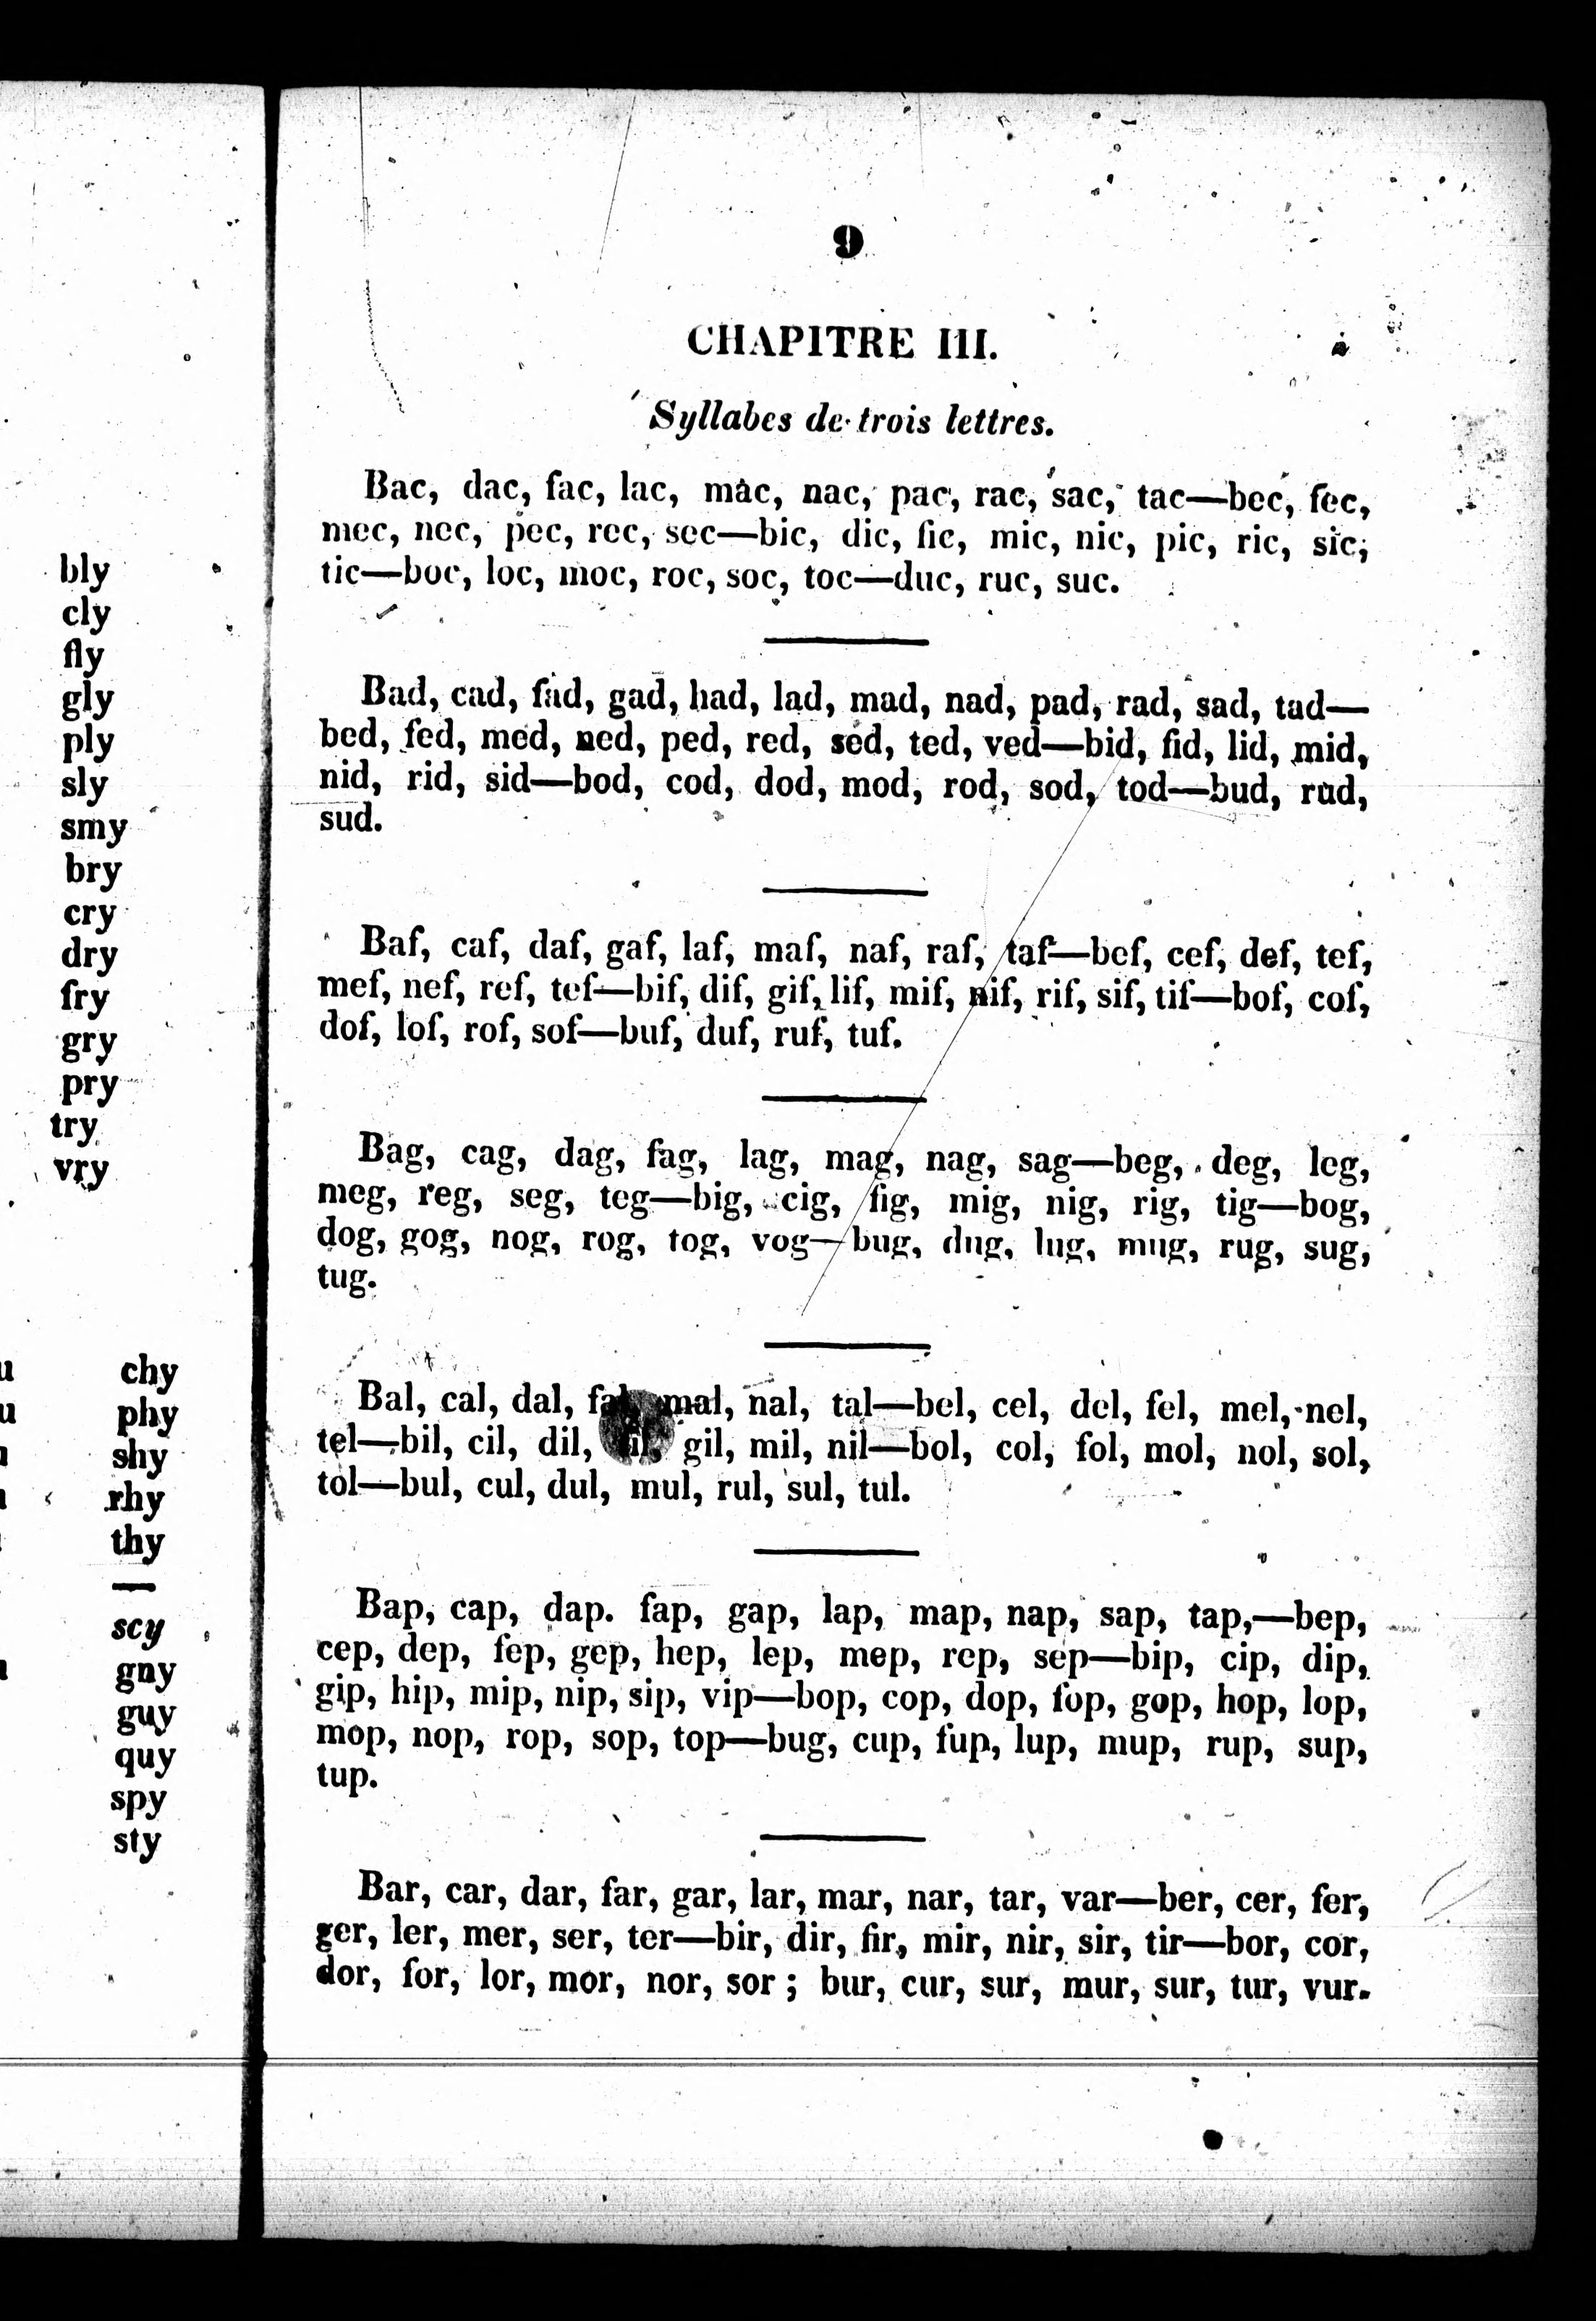 bly
cly
fly
gly
ply
sly
smy
bry
cry
dry
fry
gry
pry
try
vry
chy
phy
shy
rhy
thy
—
scy
gny
guy
quy
spy
sty
9
CHAPITRE III.
Syllabes de trois lettres.
Bac, dac, fac, lac, mac, nac, pac, rac, sac, tac—bec, fec,
mec, nec, pec, rec, sec—bic, dic, fic, mic, nic, pic, ric, sic,
tic—boc, loc, moc, roc, soc, toc—duc, ruc, suc.
Bad, cad, fad, gad, had, lad, mad, nad, pad, rad, sad, tad—
bed, fed, med, ned, ped, red, sed, ted, ved—bid, fid, lid, mid,
nid, rid, sid—bod, cod, dod, mod, rod, sod, tod—bud, rud,
sud.
Baf, caf, daf, gaf, laf, maf, naf, raf, taf—bef, cef, def, tef,
mef, nef, ref, tef—bif, dif, gif, lif, mif, nif, rif, sif, tif—bof, cof,
dof, lof, rof, sof—buf, duf, ruf, tuf.
Bag, cag, dag, fag, lag, mag, nag, sag—beg, deg, leg,
meg, reg, seg, teg—big, cig, fig, mig, nig, rig, tig—bog,
dog, gog, nog, rog, tog, vog—bug, dug, lug, mug, rug, sug,
tug.
Bal, cal, dal, fal, mal, nal, tal—bel, cel, del, fel, mel, nel,
tel—bil, cil, dil, fil, gil, mil, nil—bol, col, fol, mol, nol, sol,
tol—bul, cul, dul, mul, rul, sul, tul.
Bap, cap, dap. fap, gap, lap, map, nap, sap, tap,—bep,
cep, dep, fep, gep, hep, lep, mep, rep, sep—bip, cip, dip,
gip, hip, mip, nip, sip, vip—bop, cop, dop, fop, gop, hop, lop,
mop, nop, rop, sop, top—bug, cup, fup, lup, mup, rup, sup,
tup.
Bar, car, dar, far, gar, lar, mar, nar, tar, var—ber, cer, fer,
ger, ler, mer, ser, ter—bir, dir, fir, mir, nir, sir, tir—bor, cor,
dor, for, lor, mor, nor, sor ; bur, cur, sur, mur, sur, tur, vur.